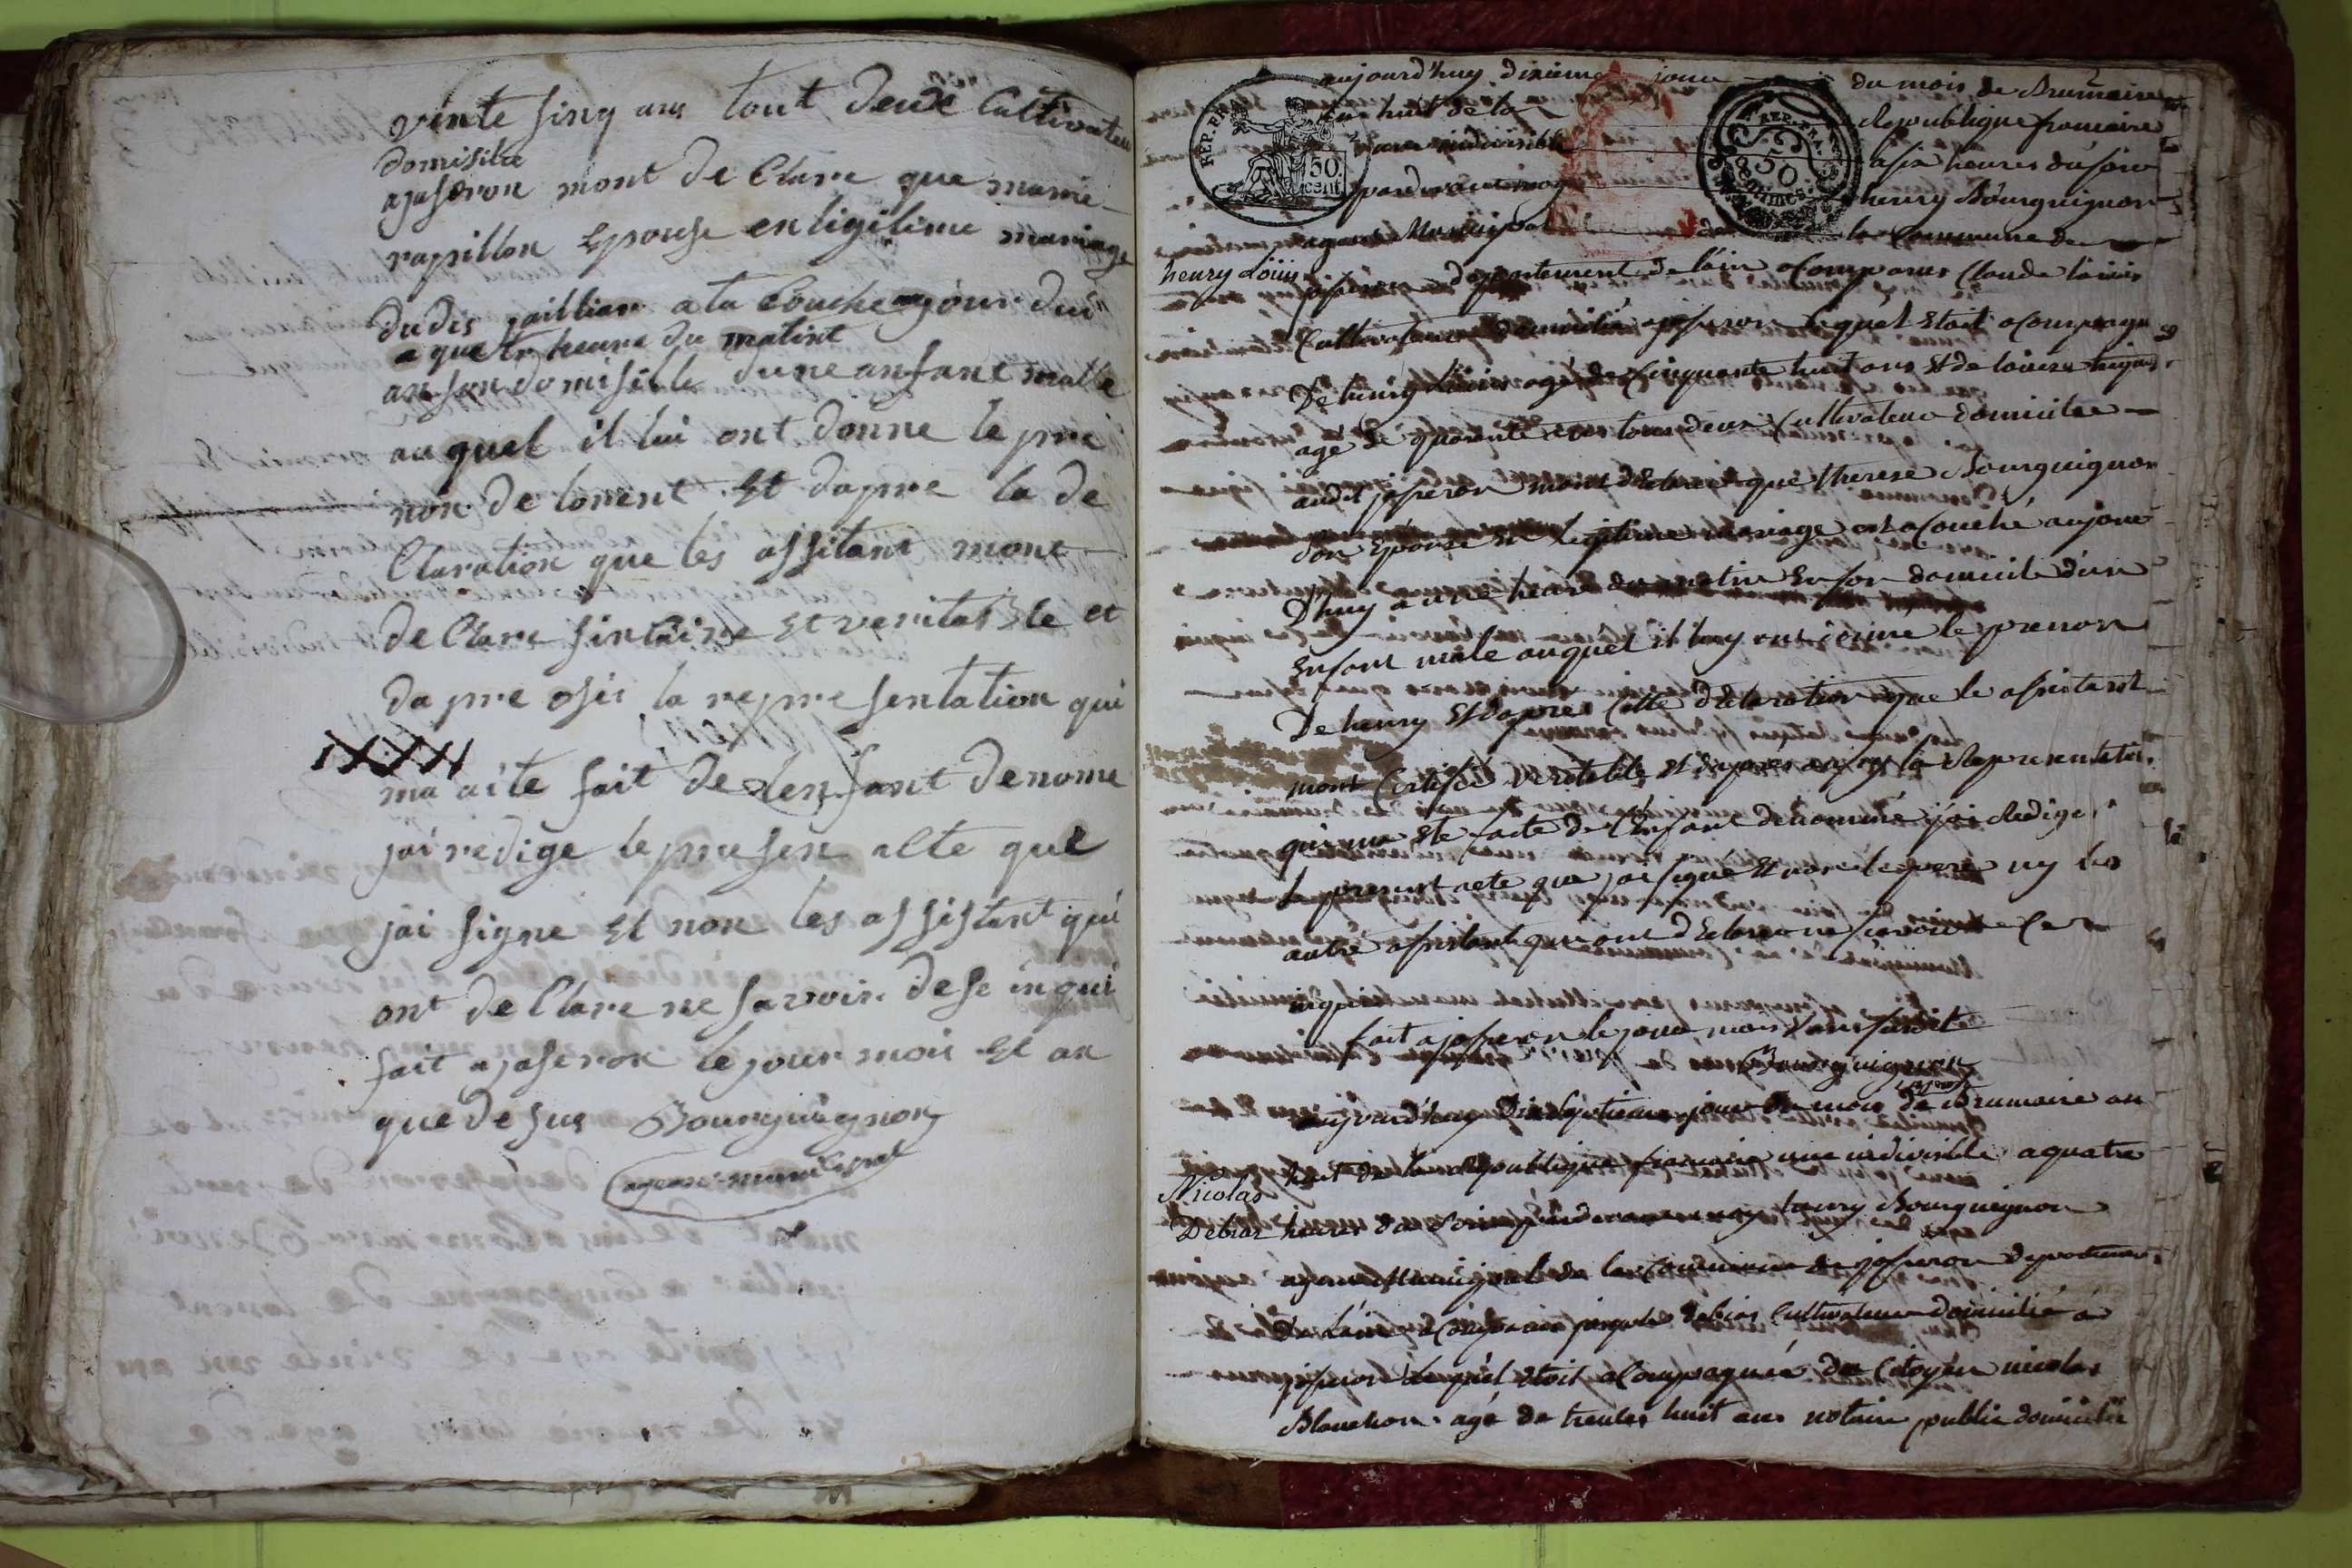 vinte sinq ans tout deux Cultivateu
domisilie
ajaseron mont de Clare que marie
rapillon Epouse en ligitime mariage
dudis jaillian a ta Couche aujour dui
a quatr heure du matint
an son domisille dune anfant malle
au quel il lui ont donne le pre
non de lorent Et dapre la de
Claration que les assitant mont
de Clare sintaire Et veritasble et
da pre osis la repre sentation qui
ma aite fait de lenfant denome
jai redige le presen alte que
jai signe Et non les assistant qui
ont de Clare ne savoir de se in qui
fait ajaseron le jour mois Et an
que desus Bourguignon
agent municipal
aujourd'huy dixieme jour du mois de Brumaire
an huit de la Republique francaise
une indivisible a six heures du soir
pardevant moy henry Bourguignon
agent Municipal de la Commune de
henry Louis
joseron departement de l'ain a Comparus Claude louis
Cultivateur domicilié a joseron lequel Etoit acompagn
De henry Louis agé de Cinquante huit ans Et de
agé de quarante ans tous deux Cultivateur domicilie
audit joseron mont declaré que therese Bourguignon
son Epouse en legitime mariage est acouché aujour
D'huy a une heure du matin En son domicile d'un
Enfant male auquel il luy ont donné le prenon
De henry Et dapres Cette declaration que le assistant
mont Certifié veritable et dapres aussy la Representation
qui ma Ete faite de l'Enfant denommé j'ai Redigé
le present acte que j'ai signé Et non le pere ny les
autre assistant qui ont declaré ne scavoir de Ce
enquis
fait a joseron le jour mois Et ans susdit
Bourguignon
aujourd'huy Dixseptieme jour du mois de Brumaire an
huit de la Republique francaise une indivisible a quatre
Nicolas
Debias
heures du soir pardevant moy henry Bourguignon
agent Municipal de la Commune de joseron departement
De l'ain a Comparus joseph debias Cultivateur domicilié a
joseron lequel Etoit acompagné du Citoyen nicolas
Blanchon agé de trentes huit ans notaire public domicilié
REP. FRA.
50
cent.
REP. FRA.
50